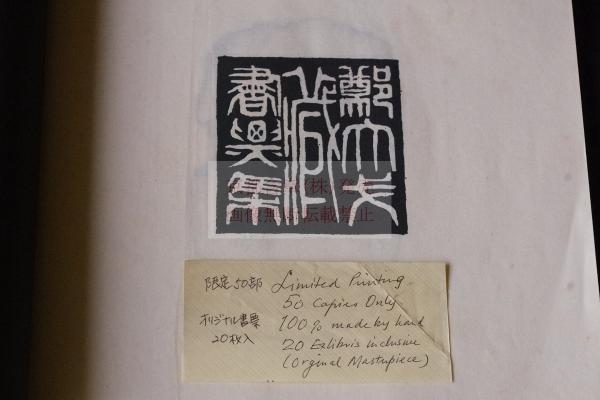 鄭
藏
書票集
(株)
画像無断転載禁止
限定50部
オリジナル書票
20枚入
Limited Printing
50 Copies Only
100% made by hand
20 Exlibris inclusive
(Orginal Masterpiece)